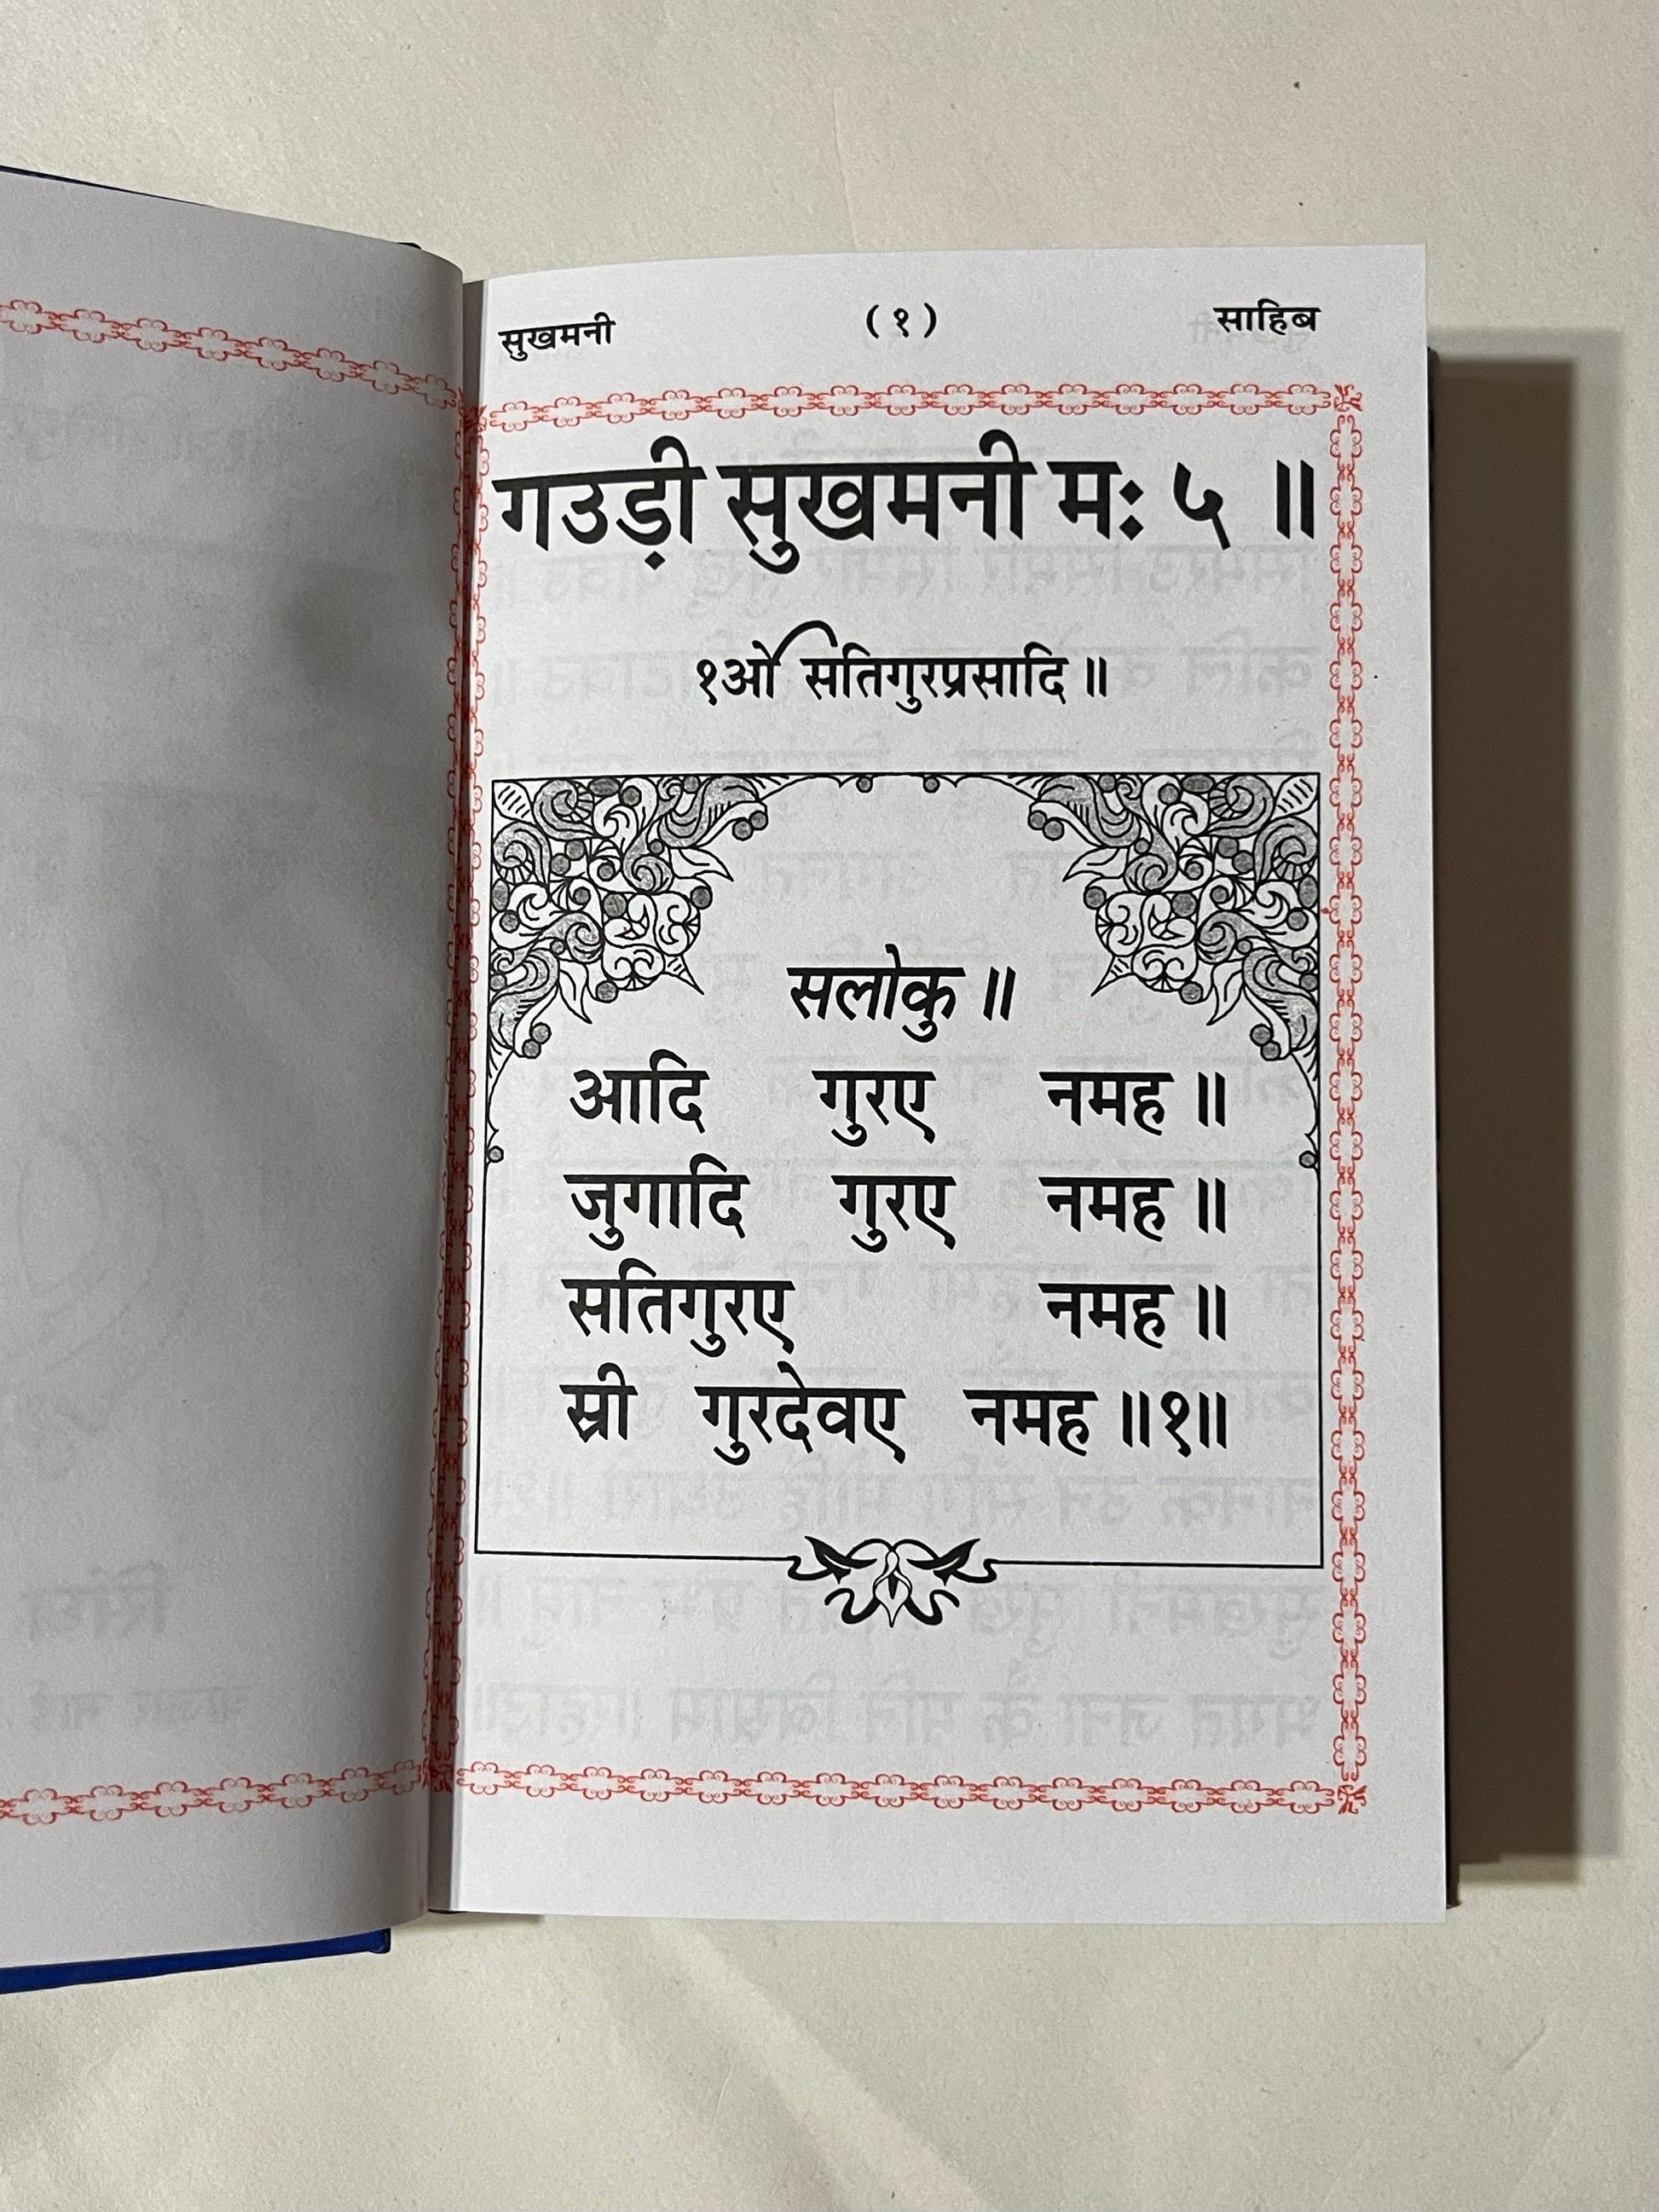 सुखमनी (१) साहिब
गउड़ी सुखमनी मः ५ ॥
१ओ सतिगुरप्रसादि ॥
सलोकु ॥
आदि गुरए नमह ॥
जुगादि गुरए नमह ॥
सतिगुरए नमह ॥
स्री गुरदेवए नमह ॥१॥